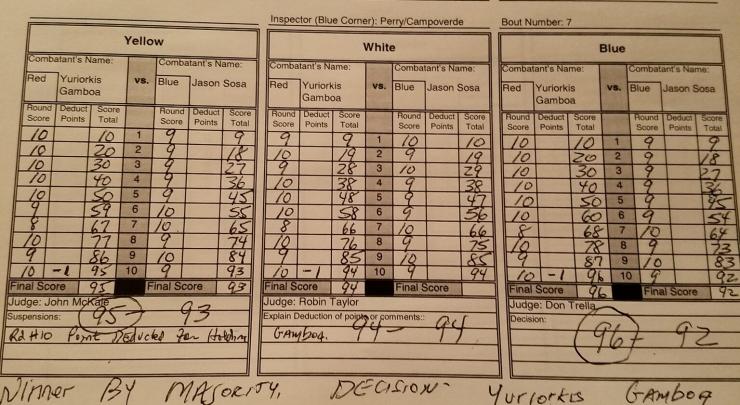 Inspector (Blue Corner): Perry/Campoverde Bout Number: 7
Yellow White Blue
Combatant's Name: Combatant's Name: Combatant's Name: Combatant's Name: Combatant's Name: Combatant's Name:
Red Yuriorkis Gamboa vs. Blue Jason Sosa Red Yuriorkis Gamboa vs. Blue Jason Sosa Red Yuriorkis Gamboa vs. Blue Jason Sosa
Round Score Deduct Points Score Total Round Score Deduct Points Score Total Round Score Deduct Points Score Total Round Score Deduct Points Score Total Round Score Deduct Points Score Total Round Score Deduct Points Score Total
10 10 1 9 9 9 9 1 10 10 10 10 1 9 9
10 20 2 9 18 10 19 2 9 19 10 20 2 9 18
10 30 3 9 27 9 28 3 10 29 10 30 3 9 27
10 40 4 9 36 10 38 4 9 38 10 40 4 9 36
10 50 5 9 45 10 48 5 9 47 10 50 5 9 45
9 59 6 10 55 10 58 6 9 56 10 60 6 9 54
8 67 7 10 65 8 66 7 10 66 8 68 7 10 64
10 77 8 9 74 10 76 8 9 75 10 78 8 9 73
9 86 9 10 84 9 85 9 10 85 9 87 9 10 83
10 -1 95 10 9 93 10 -1 94 10 9 94 10 -1 96 10 9 92
Final Score 95 Final Score 93 Final Score 94 Final Score Final Score 96 Final Score 92
Judge: John McKaie Judge: Robin Taylor Judge: Don Trella
Suspensions: 95- 93 Explain Deduction of points or comments:: 94- 94 Decision: 96- 92
Rd #10 Point Deducted For Holding GAmboa.
Winner By MAJORITY, DECISION- Yuriorkis GAMBOA